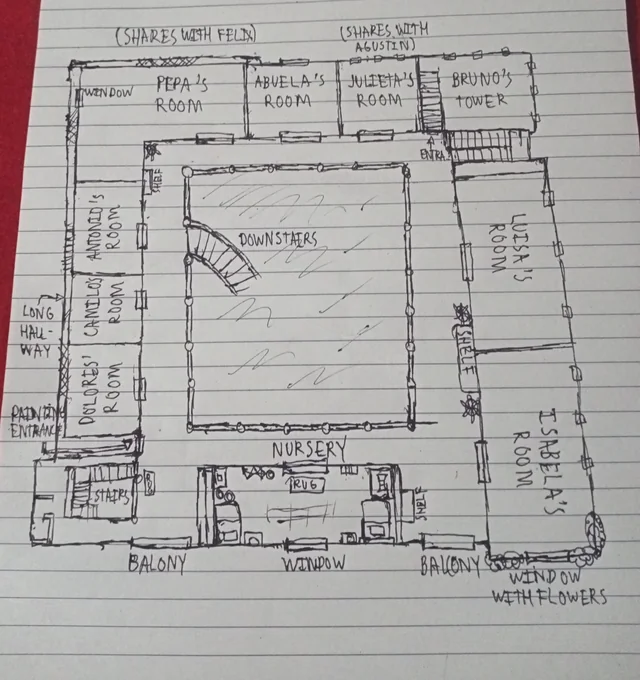 (SHARES WITH FELIX)
(SHARES WITH
AGUSTIN)
WINDOW
PEPA'S
ROOM
ABUELA'S
ROOM
JULIETA'S
ROOM
BRUNO'S
TOWER
ENTRA.
SHELF
ANTONIO'S
ROOM
DOWNSTAIRS
LUISA'S
ROOM
LONG
HALL-
WAY
CAMILOS
ROOM
SHELF
DOLORES'
ROOM
ISABELA'S
ROOM
ENTRANCE
NURSERY
STAIRS
RUG
SHELF
BALONY
WINDOW
BALCONY
WINDOW
WITH FLOWERS